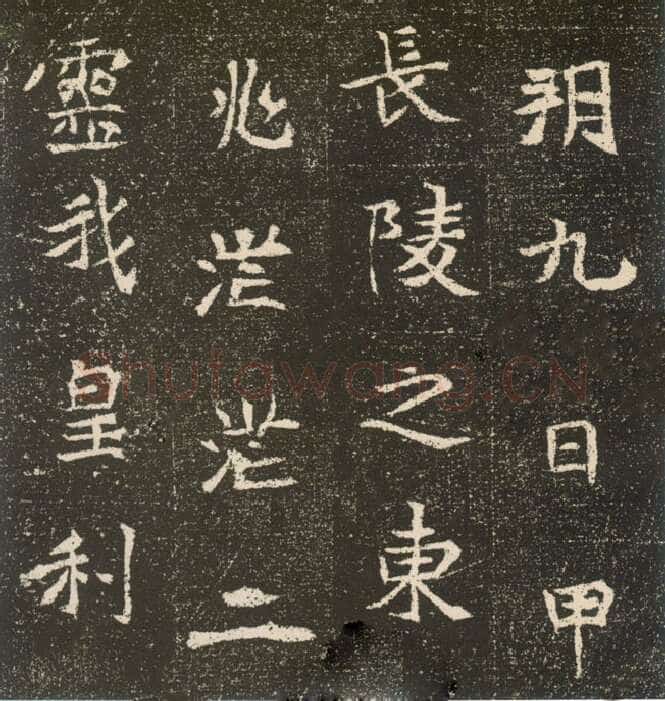 朔九日甲
長陵之東
兆茫茫二
靈我皇利
Shufawang.CN